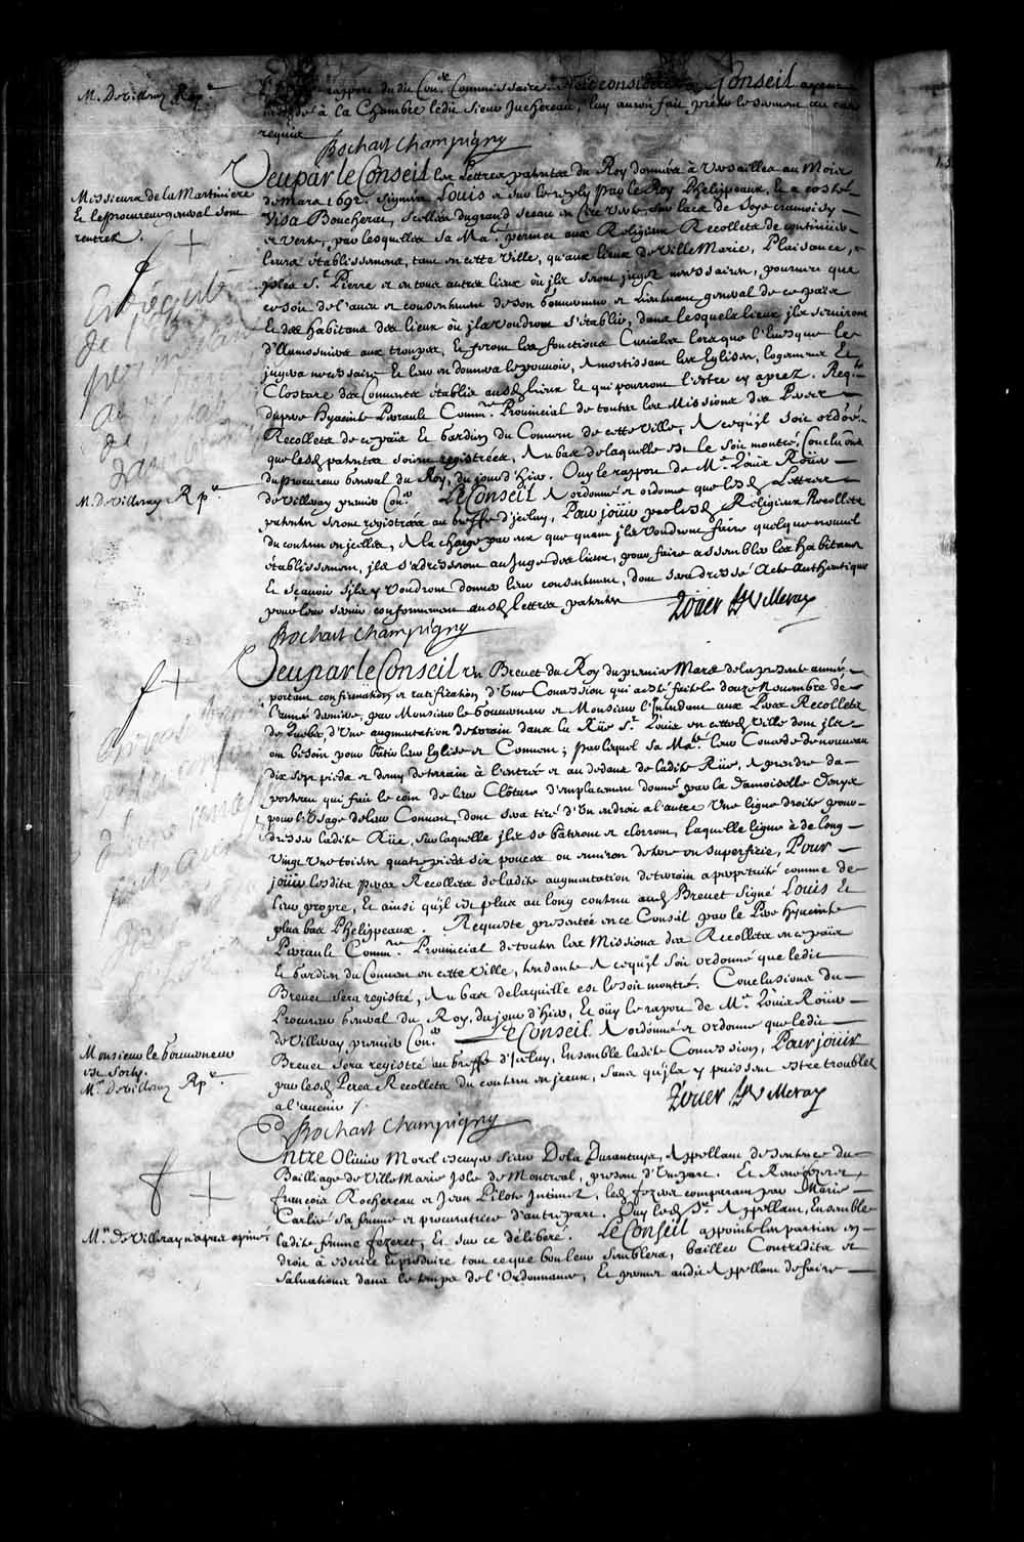 M. De Villeray Rap.r
rapport du dit Con.er Commissaire Tout considéré Le Conseil ayant
mandé à la Chambre ledit Sieur Juchereau, luy auroit fait prêter le serment au cas
requis
Bochart Champigny
Veu par le Conseil les Lettres patentes du Roy données à Versailles au Mois
Messieurs de la Martiniere
Et le procureur general sont
rentrez.
de Mars 1692. Signées Louis et sur le reply par le Roy Phelippeaux, Et a costé
Visa Boucherat, Scellées du grand sceau en Cire verte, sur lacs de Soye cramoisy
et verte, par lesquelles sa Ma.té permet aux Religieux Recollets de continuer
leurs établissemens, tant en cette Ville, qu'aux lieux de Ville Marie, Plaisance,
Isles S.t Pierre et en tous autres lieux où jls seront jugez necessaires, pourveu que
ce soit de l'avis et consentement de son Gouverneur et Lieutenant general de ce païs
Et des habitans des lieux où jls voudront s'établir, dans lesquels lieux jls serviront
d'Aumosniers aux troupes, Et feront les fonctions Curiales lors que l'Evesque le
jugera necessaire Et leur en donnera le pouvoir, Amortissant les Eglises, logemens Et
Clostures des Couvents établis ausd. lieux Et qui pourront l'estre cy aprez. Req.te
du pere Hyacinte Perrault Comm.re Provincial de toutes les Missions des Peres
Recollets de ce païs Et Gardien du Convent de cette Ville, A ce qu'il soit ordoné
que lesd. patentes soient registrées, Au bas de laquelle est le soit montré, Conclu.ons
du procureur General du Roy, du jour d'hier. Ouy le rapport de M.e Loüis Roüer
M. de Villeray Rp.r
de Villeray premier Con.er Le Conseil A ordonné et ordonne que lesd. Lettres
patentes seront registrées au Greffe d'jceluy, Pour joüir par lesd. Religieux Recollets
du contenu en jcelles, A la charge par eux que quand jls voudront faire quelque nouvel
établissement, jls s'adresseront au Juge des lieux, pour faire assembler les habitans
Et sçavoir s'jls y voudront donner leur consentement, dont sera dressé Acte Authentique
pour leur servir conformement ausd. lettres patentes
Roüer de Villeray
Bochart Champigny
Veu par le Conseil un Brevet du Roy du premier Mars de la presente année
portant confirmation et ratification d'Une Concession qui a esté faite le douze Novembre de
l'année derniere, par Monsieur le Gouverneur et Monsieur l'Intendant aux Peres Recollets
de Quebec, d'Une augmentation de terrain dans la Rüe S.t Loüis en cetted. Ville dont jls
ont besoin pour bâtir leur Eglise et Convent; par lequel sa Ma.té leur Concede de nouveau
dix sept pieds et demy de terrain à l'entrée et au dedans de ladite Rüe, A prendre
qui fait le coin de leur Clôture d'emplacement donné par la Damoiselle Denys
pour l'Usage de leur Convent, dont sera tiré d'Un endroit a l'autre Une ligne droite pour
dresser ladite Rüe, sur laquelle jls se bâtiront et cloront, laquelle ligne a de long
Vingt Une toises quatre pieds six pouces ou environ de terre en superficie, Pour
joüir lesdits peres Recollets de ladite augmentation de terrain a perpetuité comme de
leur propre, Et ainsi qu'il est plus au long contenu aud. Brevet Signé Louis Et
plus bas Phelippeaux. Requeste presentée en ce Conseil par le Pere Hyacinte
Perrault Comm.re Provincial de toutes les Missions des Recollets en ce païs
Et Gardien du Convent en cette Ville, tendante A ce qu'il soit ordonné que ledit
Brevet sera registré, Au bas de laquelle est le soit montré. Conclusions du
Procureur General du Roy, du jour d'hier, Et oüy le raport de M.e Loüis Roüer
de Villeray premier Con.er Le Conseil A ordonné et ordonne que ledit
Monsieur le Gouverneur
est Sorty.
M.r de Villeray Rp.r
Brevet sera registré au Greffe d'jceluy, Ensemble ladite Concession, Pour joüir
par lesd. Peres Recollets du contenu en jceux, sans qu'jls y puissent estre troublez
a l'avenir /.
Roüer de Villeray
Bochart Champigny
Entre Olivier Morel escuyer Sieur De la Durantaye, Appellant de Sentence du
Bailliage de Ville Marie Isle de Montreal, present d'Une part. Et René fezeret
francois Rochereau et Jean Pilote Intimez, led. fezeret comparant par Marie
Carlié sa femme et procuratrice d'autre part. Ouy led. S.r Appellant, Ensemble
ladite femme fezeret, Et sur ce déliberé. Le Conseil appointe les parties en
M.r De Villeray n'a pas opiné
droit a escrire Et produire tout ce que bon leur semblera, bailler Contredits et
Salvations dans le temps de l'Ordonnance, Et permet audit Appellant de faire